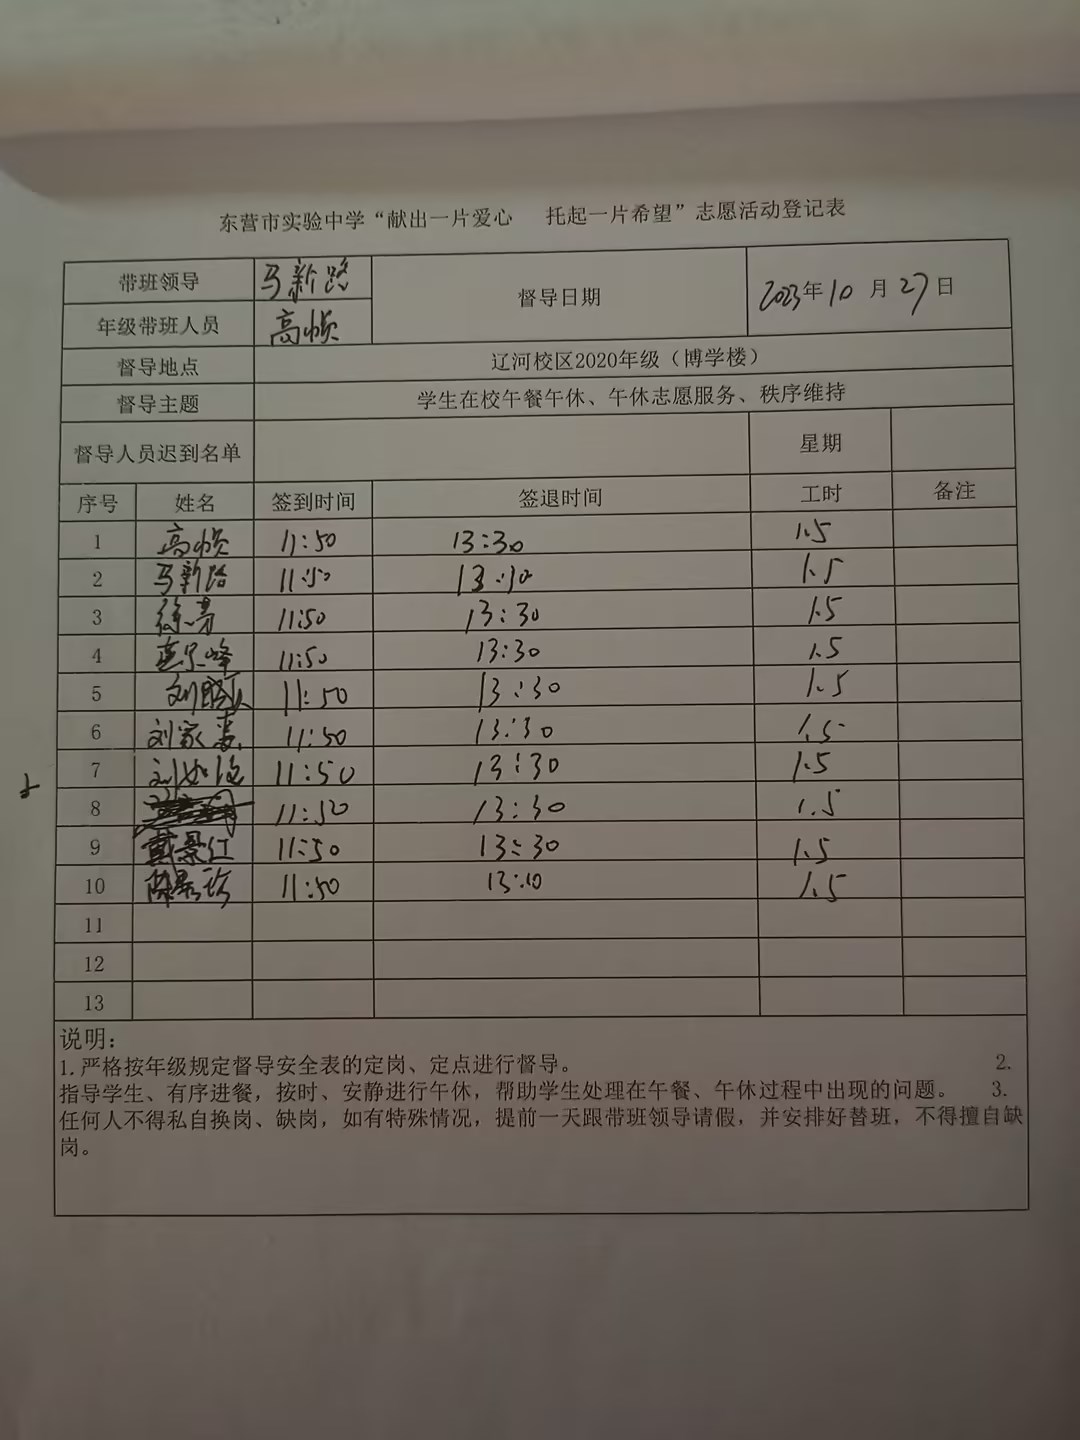 东营市实验中学“献出一片爱心 托起一片希望”志愿活动登记表
带班领导 马新路 督导日期 2023年10月27日
年级带班人员 高帧
督导地点 辽河校区2020年级（博学楼）
督导主题 学生在校午餐午休、午休志愿服务、秩序维持
督导人员迟到名单 星期
序号 姓名 签到时间 签退时间 工时 备注
1 高帧 11:50 13:30 1.5
2 马新路 11:50 13:30 1.5
3 11:50 13:30 1.5
4 11:50 13:30 1.5
5 11:50 13:30 1.5
6 刘家 11:50 13:30 1.5
7 11:50 13:30 1.5
8 11:50 13:30 1.5
9 戴景红 11:50 13:30 1.5
10 11:50 13:10 1.5
11
12
13
说明：
1.严格按年级规定督导安全表的定岗、定点进行督导。 2.
指导学生、有序进餐，按时、安静进行午休，帮助学生处理在午餐、午休过程中出现的问题。 3.
任何人不得私自换岗、缺岗，如有特殊情况，提前一天跟带班领导请假，并安排好替班，不得擅自缺
岗。